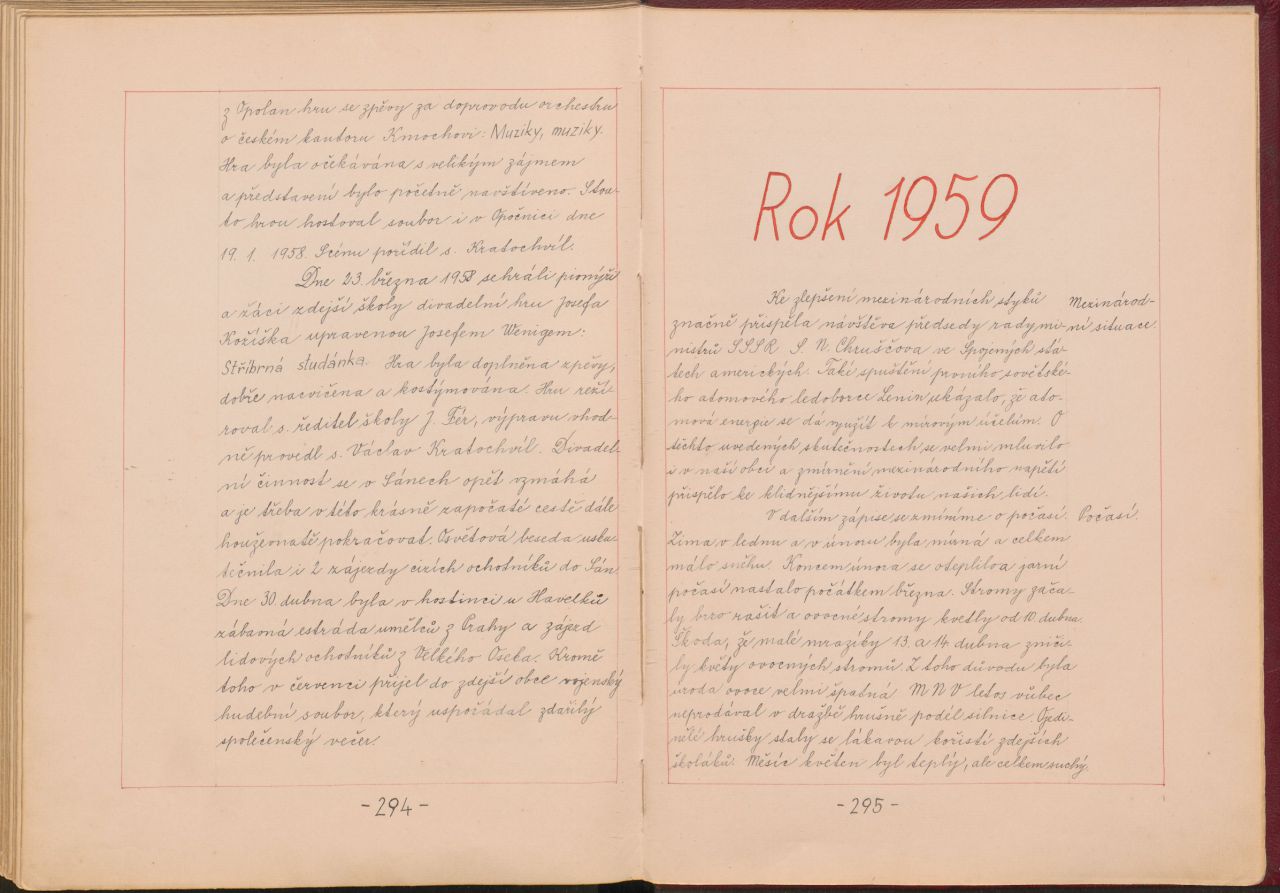 z Opolan hru se zpěvy za doprovodu orchestru
o českém kantoru Kmochovi: Muziky, muziky.
Hra byla očekávána s velikým zájmem
a představení bylo početně navštíveno. S tou-
to hrou hostoval soubor i v Opočnici dne
19. 1. 1958. Scénu pořídil s. Kratochvíl.
Dne 23. března 1958 sehráli pionýři
a žáci zdejší školy divadelní hru Josefa
Kožíška upravenou Josefem Wenigem:
Stříbrná studánka. Hra byla doplněna zpěvy,
dobře nacvičena a kostýmována. Hru reží-
roval s. ředitel školy J. Fér, výpravu vhod-
ně provedl s. Václav Kratochvíl. Divadel-
ní činnost se v Sánech opět vzmáhá
a je třeba v této krásně započaté cestě dále
houževnatě pokračovat. Osvětová beseda usku-
tečnila i 2 zájezdy cizích ochotníků do Sán
Dne 30. dubna byla v hostinci u Havelků
zábavná estráda umělců z Prahy a zájezd
lidových ochotníků z Velkého Oseka. Kromě
toho v červenci přijel do zdejší obce vojenský
hudební soubor, který uspořádal zdařilý
společenský večer.
-294-
Rok 1959
Ke zlepšení mezinárodních styků
Mezinárod-
značně přispěla návštěva předsedy rady mi-
ní situace.
nistrů SSSR S. N. Chruščova ve Spojených stá-
tech amerických. Také spuštění prvního sovětské-
ho atomového ledoborce Lenin ukázalo, že ato-
mová energie se dá využít k mírovým účelům. O
těchto uvedených skutečnostech se velmi mluvilo
i v naší obci a zmírnění mezinárodního napětí
přispělo ke klidnějšímu životu našich lidí.
V dalším zápise se zmíníme o počasí.
Počasí.
Zima v lednu a v únoru byla mírná a celkem
málo sněhu. Koncem února se oteplilo a jarní
počasí nastalo počátkem března. Stromy zača-
ly brzo rašit a ovocné stromy kvetly od 10. dubna.
Škoda, že malé mrazíky 13. a 14. dubna zniči-
ly květy ovocných stromů. Z toho důvodu byla
úroda ovoce velmi špatná MNV letos vůbec
neprodával v dražbě hrušně podél silnice. Ojedi-
nělé hrušky staly se lákavou kořistí zdejších
školáků. Měsíc květen byl teplý, ale celkem suchý.
-295-